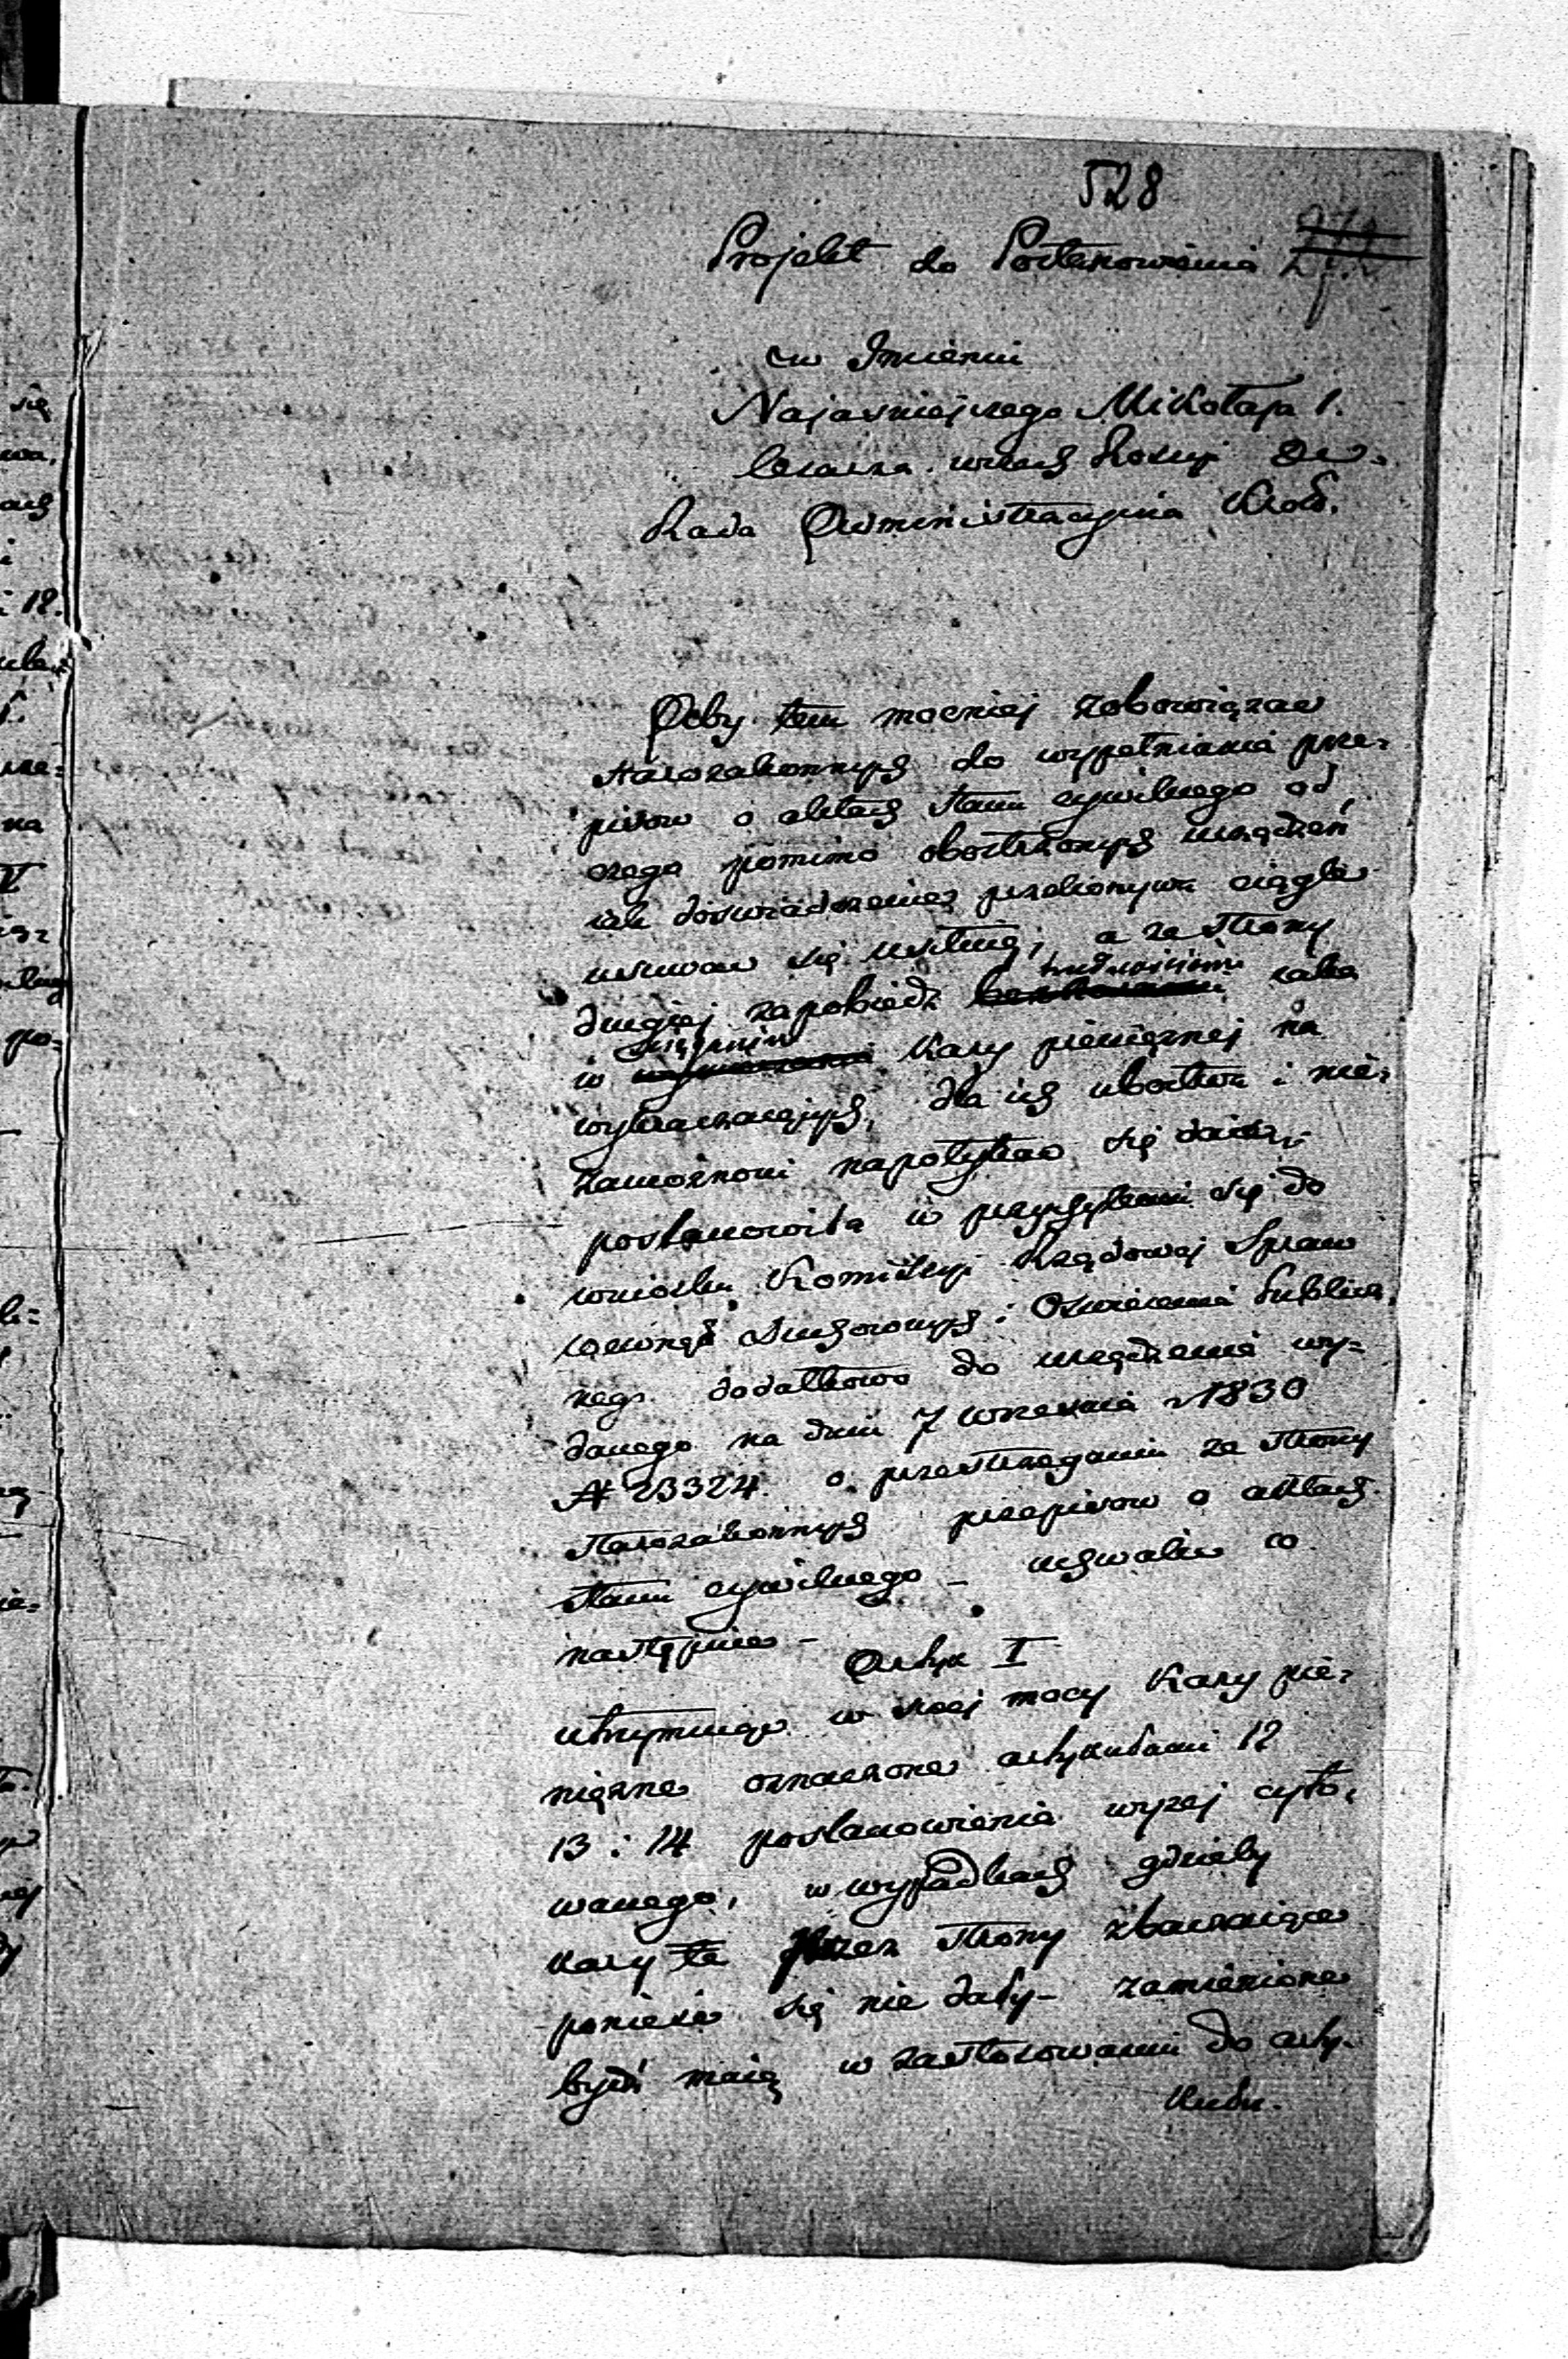 528
Projekt do Postanowienia
w Imieniu
Najaśniejszego Mikołaja I.
Cesarza wszech Rossyi &c.
Rada Administracyjna Król.
Aby tem mocniej zobowiązać
starozakonnych do wypełniania prze=
pisow o aktach stanu cywilnego od
czego pomimo obostrzonych urządzeń
iak doswiadczenie przekonywa ciągle
usuwac się usiłuią, a ze strony
drugiej zapobiedz trudnościom iakie
w ściąganiu kary pieniężnej na
wykraczaiących, dla ich ubostwa i nie=
zamożnosci napotykac się daie,
postanowiła w przychyleniu się do
wniosku Kommissyi Rządowej Spraw
Wewnętr Duchownych i Oswiecenia Publicz=
nego dodatkowo do urządzenia wy=
danego na dniu 7 Września r 1830
N 23324. o przestrzeganiu ze strony
starozakonnych przepisow o aktach
stanu cywilnego – uchwalic co
następuie –
Artyk I
utrzymuiąc w swej mocy kary pie=
niężne oznaczone artykułami 12
13 i 14 postanowienia wyzej cyto=
wanego, w wypadkach gdzieby
kary te przez strony zbaczaiące
poniesc się nie dały – zamienione
bydź maią w zastosowaniu do arty=
kułu.
się
wa,
ach
i
i 12.
na
po=